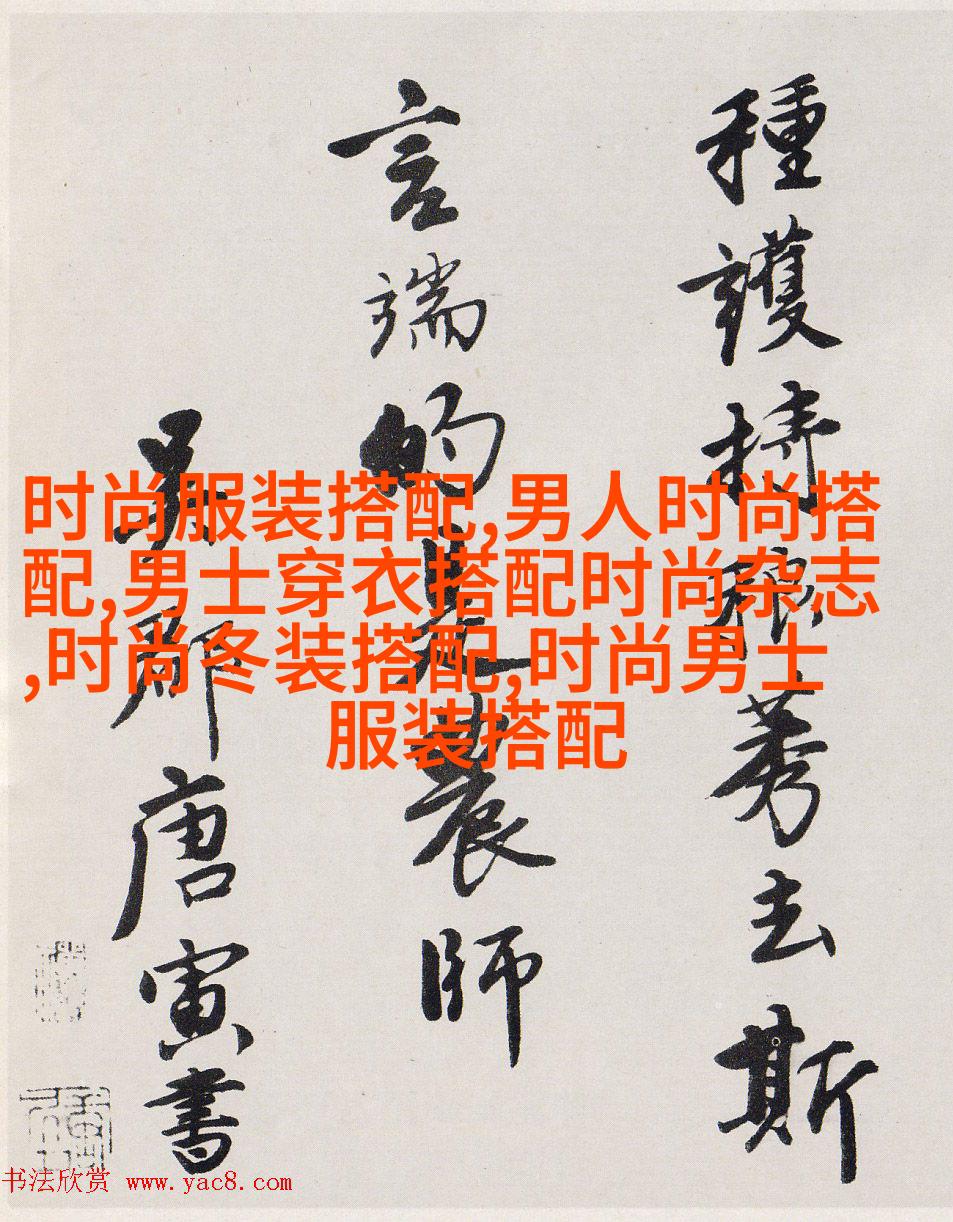 種護持稂莠去斯
言端的是農師
吳郡唐寅書
时尚服装搭配,男人时尚搭
配,男士穿衣搭配时尚杂志
,时尚冬装搭配,时尚男士
服装搭配
书法欣赏 www.yac8.com